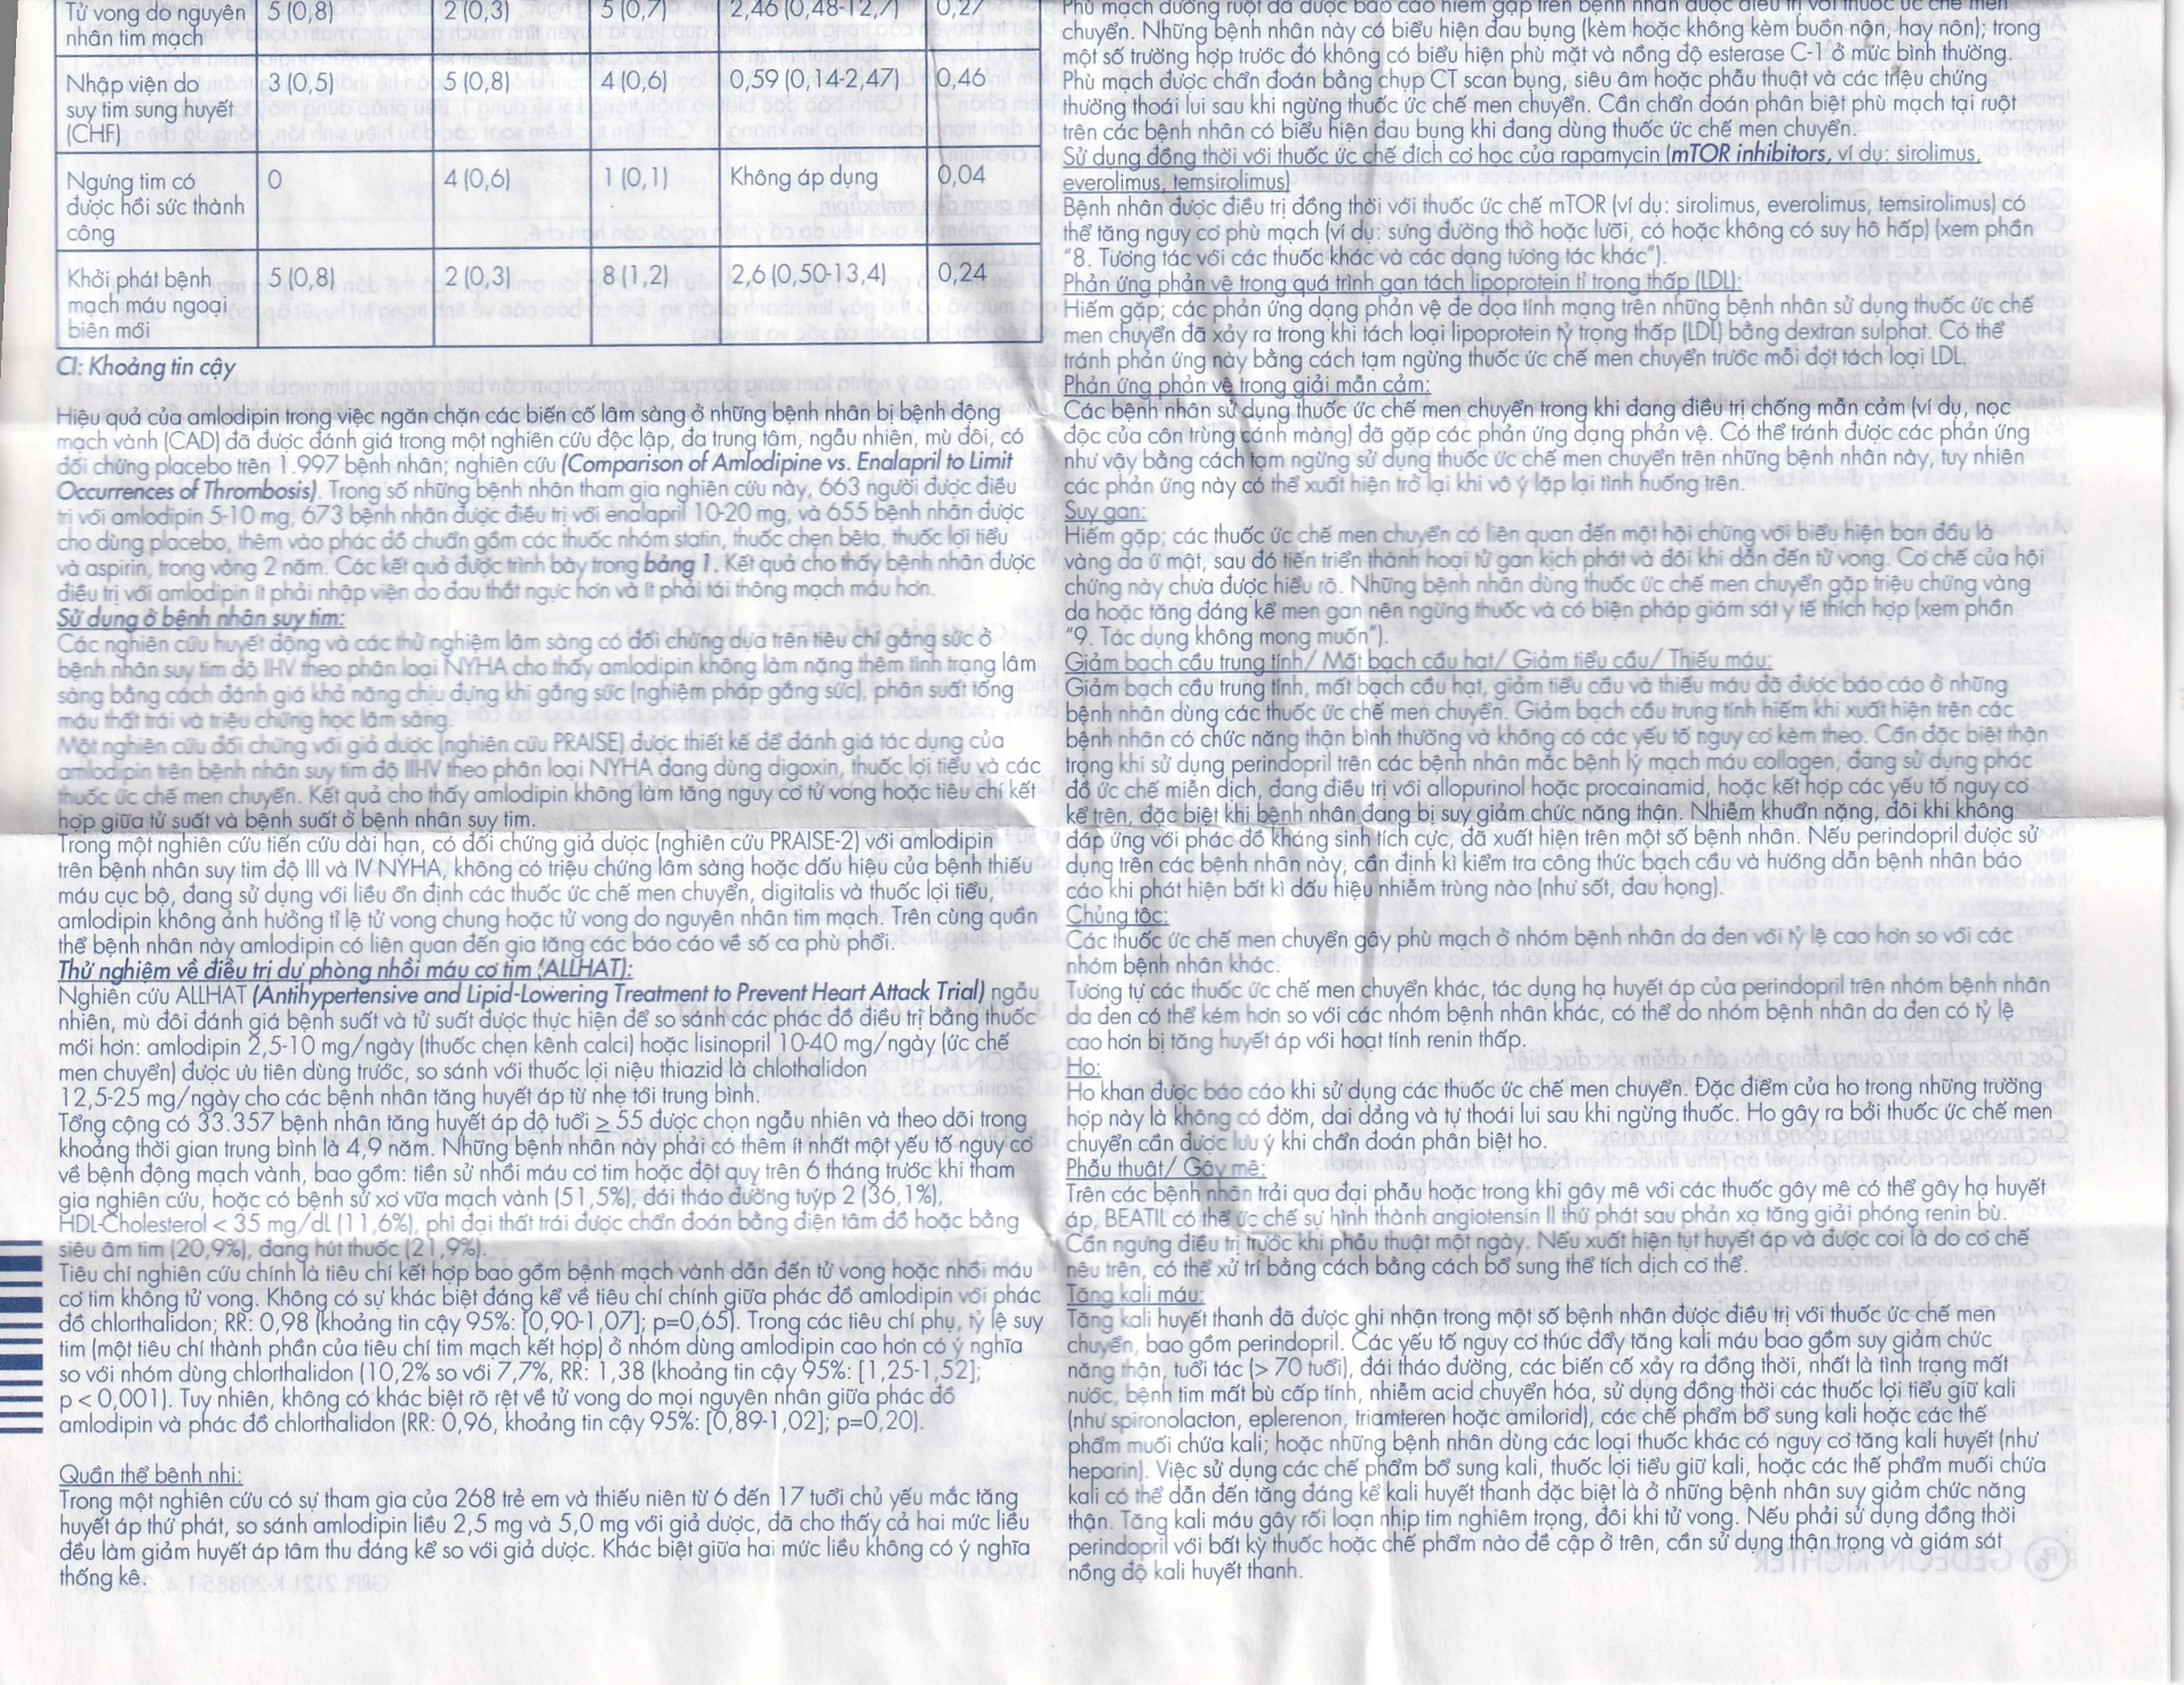 Tử vong do nguyên 5 (0,8) 2 (0,3) 5 (0,7) 2,46 (0,48-12,7) 0,27
nhân tim mạch
Nhập viện do 3 (0,5) 5 (0,8) 4 (0,6) 0,59 (0,14-2,47) 0,46
suy tim sung huyết
(CHF)
Ngưng tim có 0 4 (0,6) 1 (0,1) Không áp dụng 0,04
được hồi sức thành
công
Khởi phát bệnh 5 (0,8) 2 (0,3) 8 (1,2) 2,6 (0,50-13,4) 0,24
mạch máu ngoại
biên mới
CI: Khoảng tin cậy
Hiệu quả của amlodipin trong việc ngăn chặn các biến cố lâm sàng ở những bệnh nhân bị bệnh động
mạch vành (CAD) đã được đánh giá trong một nghiên cứu độc lập, đa trung tâm, ngẫu nhiên, mù đôi, có
đối chứng placebo trên 1.997 bệnh nhân; nghiên cứu (Comparison of Amlodipine vs. Enalapril to Limit
Occurrences of Thrombosis). Trong số những bệnh nhân tham gia nghiên cứu này, 663 người được điều
trị với amlodipin 5-10 mg, 673 bệnh nhân được điều trị với enalapril 10-20 mg, và 655 bệnh nhân được
cho dùng placebo, thêm vào phác đồ chuẩn gồm các thuốc nhóm statin, thuốc chẹn bêta, thuốc lợi tiểu
và aspirin, trong vòng 2 năm. Các kết quả được trình bày trong bảng 1. Kết quả cho thấy bệnh nhân được
điều trị với amlodipin ít phải nhập viện do đau thắt ngực hơn và ít phải tái thông mạch máu hơn.
Sử dụng ở bệnh nhân suy tim:
Các nghiên cứu huyết động và các thử nghiệm lâm sàng có đối chứng dựa trên tiêu chí gắng sức ở
bệnh nhân suy tim độ II-IV theo phân loại NYHA cho thấy amlodipin không làm nặng thêm tình trạng lâm
sàng bằng cách đánh giá khả năng chịu đựng khi gắng sức (nghiệm pháp gắng sức), phân suất tống
máu thất trái và triệu chứng học lâm sàng.
Một nghiên cứu đối chứng với giả dược (nghiên cứu PRAISE) được thiết kế để đánh giá tác dụng của
amlodipin trên bệnh nhân suy tim độ III-IV theo phân loại NYHA đang dùng digoxin, thuốc lợi tiểu và các
thuốc ức chế men chuyển. Kết quả cho thấy amlodipin không làm tăng nguy cơ tử vong hoặc tiêu chí kết
hợp giữa tử suất và bệnh suất ở bệnh nhân suy tim.
Trong một nghiên cứu tiến cứu dài hạn, có đối chứng giả dược (nghiên cứu PRAISE-2) với amlodipin
trên bệnh nhân suy tim độ III và IV NYHA, không có triệu chứng lâm sàng hoặc dấu hiệu của bệnh thiếu
máu cục bộ, đang sử dụng với liều ổn định các thuốc ức chế men chuyển, digitalis và thuốc lợi tiểu,
amlodipin không ảnh hưởng tỉ lệ tử vong chung hoặc tử vong do nguyên nhân tim mạch. Trên cùng quần
thể bệnh nhân này amlodipin có liên quan đến gia tăng các báo cáo về số ca phù phổi.
Thử nghiệm về điều trị dự phòng nhồi máu cơ tim (ALLHAT):
Nghiên cứu ALLHAT (Antihypertensive and Lipid-Lowering Treatment to Prevent Heart Attack Trial) ngẫu
nhiên, mù đôi đánh giá bệnh suất và tử suất được thực hiện để so sánh các phác đồ điều trị bằng thuốc
mới hơn: amlodipin 2,5-10 mg/ngày (thuốc chẹn kênh calci) hoặc lisinopril 10-40 mg/ngày (ức chế
men chuyển) được ưu tiên dùng trước, so sánh với thuốc lợi niệu thiazid là chlothalidon
12,5-25 mg/ngày cho các bệnh nhân tăng huyết áp từ nhẹ tới trung bình.
Tổng cộng có 33.357 bệnh nhân tăng huyết áp độ tuổi ≥ 55 được chọn ngẫu nhiên và theo dõi trong
khoảng thời gian trung bình là 4,9 năm. Những bệnh nhân này phải có thêm ít nhất một yếu tố nguy cơ
về bệnh động mạch vành, bao gồm: tiền sử nhồi máu cơ tim hoặc đột quỵ trên 6 tháng trước khi tham
gia nghiên cứu, hoặc có bệnh sử xơ vữa mạch vành (51,5%), đái tháo đường tuýp 2 (36,1%),
HDL-Cholesterol < 35 mg/dL (11,6%), phì đại thất trái được chẩn đoán bằng điện tâm đồ hoặc bằng
siêu âm tim (20,9%), đang hút thuốc (21,9%).
Tiêu chí nghiên cứu chính là tiêu chí kết hợp bao gồm bệnh mạch vành dẫn đến tử vong hoặc nhồi máu
cơ tim không tử vong. Không có sự khác biệt đáng kể về tiêu chí chính giữa phác đồ amlodipin với phác
đồ chlorthalidon; RR: 0,98 (khoảng tin cậy 95%: [0,90-1,07]; p=0,65). Trong các tiêu chí phụ, tỷ lệ suy
tim (một tiêu chí thành phần của tiêu chí tim mạch kết hợp) ở nhóm dùng amlodipin cao hơn có ý nghĩa
so với nhóm dùng chlorthalidon (10,2% so với 7,7%, RR: 1,38 (khoảng tin cậy 95%: [1,25-1,52];
p < 0,001). Tuy nhiên, không có khác biệt rõ rệt về tử vong do mọi nguyên nhân giữa phác đồ
amlodipin và phác đồ chlorthalidon (RR: 0,96, khoảng tin cậy 95%: [0,89-1,02]; p=0,20).
Quần thể bệnh nhi:
Trong một nghiên cứu có sự tham gia của 268 trẻ em và thiếu niên từ 6 đến 17 tuổi chủ yếu mắc tăng
huyết áp thứ phát, so sánh amlodipin liều 2,5 mg và 5,0 mg với giả dược, đã cho thấy cả hai mức liều
đều làm giảm huyết áp tâm thu đáng kể so với giả dược. Khác biệt giữa hai mức liều không có ý nghĩa
thống kê.
Phù mạch đường ruột đã được báo cáo hiếm gặp trên bệnh nhân được điều trị với thuốc ức chế men
chuyển. Những bệnh nhân này có biểu hiện đau bụng (kèm hoặc không kèm buồn nôn, hay nôn); trong
một số trường hợp trước đó không có biểu hiện phù mặt và nồng độ esterase C-1 ở mức bình thường.
Phù mạch được chẩn đoán bằng chụp CT scan bụng, siêu âm hoặc phẫu thuật và các triệu chứng
thường thoái lui sau khi ngừng thuốc ức chế men chuyển. Cần chẩn đoán phân biệt phù mạch tại ruột
trên các bệnh nhân có biểu hiện đau bụng khi đang dùng thuốc ức chế men chuyển.
Sử dụng đồng thời với thuốc ức chế đích cơ học của rapamycin (mTOR inhibitors, ví dụ: sirolimus,
everolimus, temsirolimus)
Bệnh nhân được điều trị đồng thời với thuốc ức chế mTOR (ví dụ: sirolimus, everolimus, temsirolimus) có
thể tăng nguy cơ phù mạch (ví dụ: sưng đường thở hoặc lưỡi, có hoặc không có suy hô hấp) (xem phần
"8. Tương tác với các thuốc khác và các dạng tương tác khác").
Phản ứng phản vệ trong quá trình gạn tách lipoprotein tỉ trọng thấp (LDL):
Hiếm gặp; các phản ứng dạng phản vệ đe dọa tính mạng trên những bệnh nhân sử dụng thuốc ức chế
men chuyển đã xảy ra trong khi tách loại lipoprotein tỷ trọng thấp (LDL) bằng dextran sulphat. Có thể
tránh phản ứng này bằng cách tạm ngừng thuốc ức chế men chuyển trước mỗi đợt tách loại LDL.
Phản ứng phản vệ trong giải mẫn cảm:
Các bệnh nhân sử dụng thuốc ức chế men chuyển trong khi đang điều trị chống mẫn cảm (ví dụ, nọc
độc của côn trùng cánh màng) đã gặp các phản ứng dạng phản vệ. Có thể tránh được các phản ứng
như vậy bằng cách tạm ngừng sử dụng thuốc ức chế men chuyển trên những bệnh nhân này, tuy nhiên
các phản ứng này có thể xuất hiện trở lại khi vô ý lặp lại tình huống trên.
Suy gan:
Hiếm gặp; các thuốc ức chế men chuyển có liên quan đến một hội chứng với biểu hiện ban đầu là
vàng da ứ mật, sau đó tiến triển thành hoại tử gan kịch phát và đôi khi dẫn đến tử vong. Cơ chế của hội
chứng này chưa được hiểu rõ. Những bệnh nhân dùng thuốc ức chế men chuyển gặp triệu chứng vàng
da hoặc tăng đáng kể men gan nên ngừng thuốc và có biện pháp giám sát y tế thích hợp (xem phần
"9. Tác dụng không mong muốn").
Giảm bạch cầu trung tính/ Mất bạch cầu hạt/ Giảm tiểu cầu/ Thiếu máu:
Giảm bạch cầu trung tính, mất bạch cầu hạt, giảm tiểu cầu và thiếu máu đã được báo cáo ở những
bệnh nhân dùng các thuốc ức chế men chuyển. Giảm bạch cầu trung tính hiếm khi xuất hiện trên các
bệnh nhân có chức năng thận bình thường và không có các yếu tố nguy cơ kèm theo. Cần đặc biệt thận
trọng khi sử dụng perindopril trên các bệnh nhân mắc bệnh lý mạch máu collagen, đang sử dụng phác
đồ ức chế miễn dịch, đang điều trị với allopurinol hoặc procainamid, hoặc kết hợp các yếu tố nguy cơ
kể trên, đặc biệt khi bệnh nhân đang bị suy giảm chức năng thận. Nhiễm khuẩn nặng, đôi khi không
đáp ứng với phác đồ kháng sinh tích cực, đã xuất hiện trên một số bệnh nhân. Nếu perindopril được sử
dụng trên các bệnh nhân này, cần định kì kiểm tra công thức bạch cầu và hướng dẫn bệnh nhân báo
cáo khi phát hiện bất kì dấu hiệu nhiễm trùng nào (như sốt, đau họng).
Chủng tộc:
Các thuốc ức chế men chuyển gây phù mạch ở nhóm bệnh nhân da đen với tỷ lệ cao hơn so với các
nhóm bệnh nhân khác.
Tương tự các thuốc ức chế men chuyển khác, tác dụng hạ huyết áp của perindopril trên nhóm bệnh nhân
da đen có thể kém hơn so với các nhóm bệnh nhân khác, có thể do nhóm bệnh nhân da đen có tỷ lệ
cao hơn bị tăng huyết áp với hoạt tính renin thấp.
Ho:
Ho khan được báo cáo khi sử dụng các thuốc ức chế men chuyển. Đặc điểm của ho trong những trường
hợp này là không có đờm, dai dẳng và tự thoái lui sau khi ngừng thuốc. Ho gây ra bởi thuốc ức chế men
chuyển cần được lưu ý khi chẩn đoán phân biệt ho.
Phẫu thuật/ Gây mê:
Trên các bệnh nhân trải qua đại phẫu hoặc trong khi gây mê với các thuốc gây mê có thể gây hạ huyết
áp, BEATIL có thể ức chế sự hình thành angiotensin II thứ phát sau phản xạ tăng giải phóng renin bù.
Cần ngưng điều trị trước khi phẫu thuật một ngày. Nếu xuất hiện tụt huyết áp và được coi là do cơ chế
nêu trên, có thể xử trí bằng cách bằng cách bổ sung thể tích dịch cơ thể.
Tăng kali máu:
Tăng kali huyết thanh đã được ghi nhận trong một số bệnh nhân được điều trị với thuốc ức chế men
chuyển, bao gồm perindopril. Các yếu tố nguy cơ thúc đẩy tăng kali máu bao gồm suy giảm chức
năng thận, tuổi tác (> 70 tuổi), đái tháo đường, các biến cố xảy ra đồng thời, nhất là tình trạng mất
nước, bệnh tim mất bù cấp tính, nhiễm acid chuyển hóa, sử dụng đồng thời các thuốc lợi tiểu giữ kali
(như spironolacton, eplerenon, triamteren hoặc amilorid), các chế phẩm bổ sung kali hoặc các thế
phẩm muối chứa kali; hoặc những bệnh nhân dùng các loại thuốc khác có nguy cơ tăng kali huyết (như
heparin). Việc sử dụng các chế phẩm bổ sung kali, thuốc lợi tiểu giữ kali, hoặc các thế phẩm muối chứa
kali có thể dẫn đến tăng đáng kể kali huyết thanh đặc biệt là ở những bệnh nhân suy giảm chức năng
thận. Tăng kali máu gây rối loạn nhịp tim nghiêm trọng, đôi khi tử vong. Nếu phải sử dụng đồng thời
perindopril với bất kỳ thuốc hoặc chế phẩm nào đề cập ở trên, cần sử dụng thận trọng và giám sát
nồng độ kali huyết thanh.